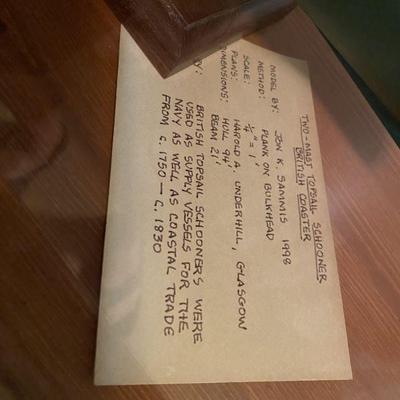 TWO-MAST TOPSAIL SCHOONER
BRITISH COASTER
MODEL BY: JON K. SAMMIS 1998
METHOD: PLANK ON BULKHEAD
SCALE: ¼" = 1'
PLANS: HAROLD A. UNDERHILL, GLASGOW
DIMENSIONS: HULL 94'
BEAM 21'
RY: BRITISH TOPSAIL SCHOONERS WERE
USED AS SUPPLY VESSELS FOR THE
NAVY AS WELL AS COASTAL TRADE
FROM C. 1750 — C. 1830